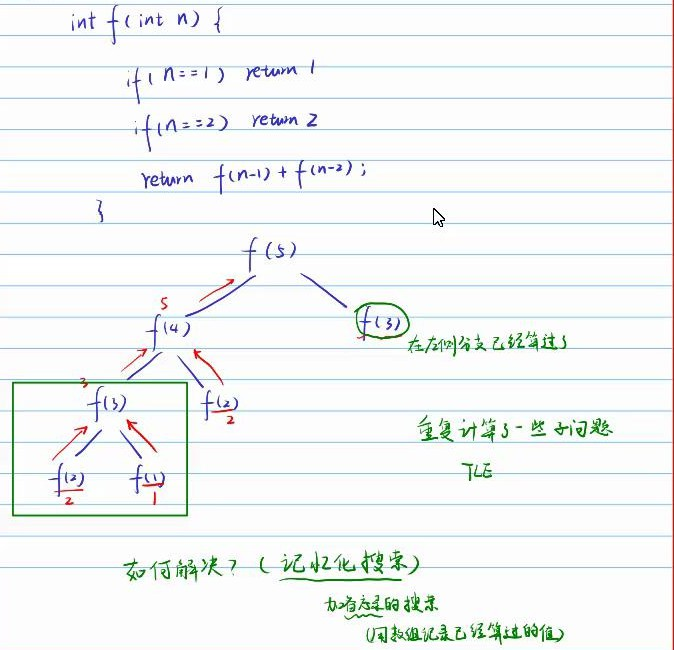 int f(int n) {
if(n==1) return 1
if(n==2) return 2
return f(n-1) + f(n-2);
}
f(5)
5
f(4)
f(3)
在左侧分支已经算过了
3
f(3)
f(2)
2
重复计算了一些子问题
f(2)
2
f(1)
1
TLE
如何解决？（记忆化搜索）
加备忘录的搜索
(用数组记录已经算过的值)